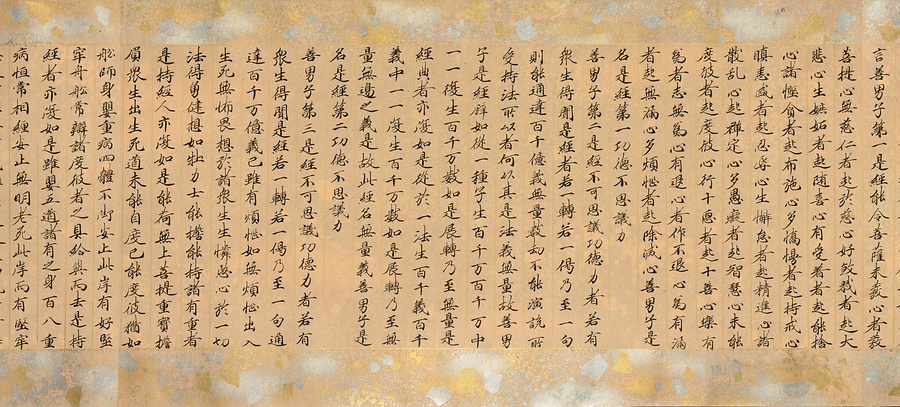 言善男子第一是經能令菩薩未發心者發
菩提心無慈仁者起於慈心好煞戮者起大
悲心生嫉妬者起隨喜心有愛著者起能捨
心諸慳貪者起布施心多憍慢者起持戒心
瞋恚盛者起忍辱心生懈怠者起精進心諸
散乱心起禪定心多愚癡者起智慧心未能
度彼者起度彼心行十惡者起十善心樂有
為者志無為心有退心者作不退心為有漏
者起無漏心多煩惱者起除滅心善男子是
名是經第一功德不思議力
善男子第二是經不可思議功德力者若有
衆生得聞是經者若一轉若一偈乃至一句
則能通達百千億義無量數劫不能演說所
受持法所以者何以其是法義無量故善男
子是經辟如從一種子生百千万百千万中
一一復生百千万數如是展轉乃至無量是
經典者亦復如是從於一法生百千義百千
義中一一復生百千万數如是展轉乃至無
量無邊之義是故此經名無量義善男子是
名是經第二功德不思議力
善男子第三是經不可思議功德力者若有
衆生得聞是經若一轉若一偈乃至一句通
達百千万億義已雖有煩惱如無煩惱出入
生死無怖畏想於諸衆生生憐愍心於一切
法得勇健想如壯力士能擔能持諸有重者
是持經人亦復如是能荷無上菩提重寶擔
負衆生出生死道未能自度已能度彼猶如
舩師身嬰重病四體不御安止此岸有好堅
牢舟舩常辦諸度彼者之具給與而去是持
經者亦復如是雖嬰五道諸有之身百八重
病恒常相纏安止無明老死此岸而有堅牢